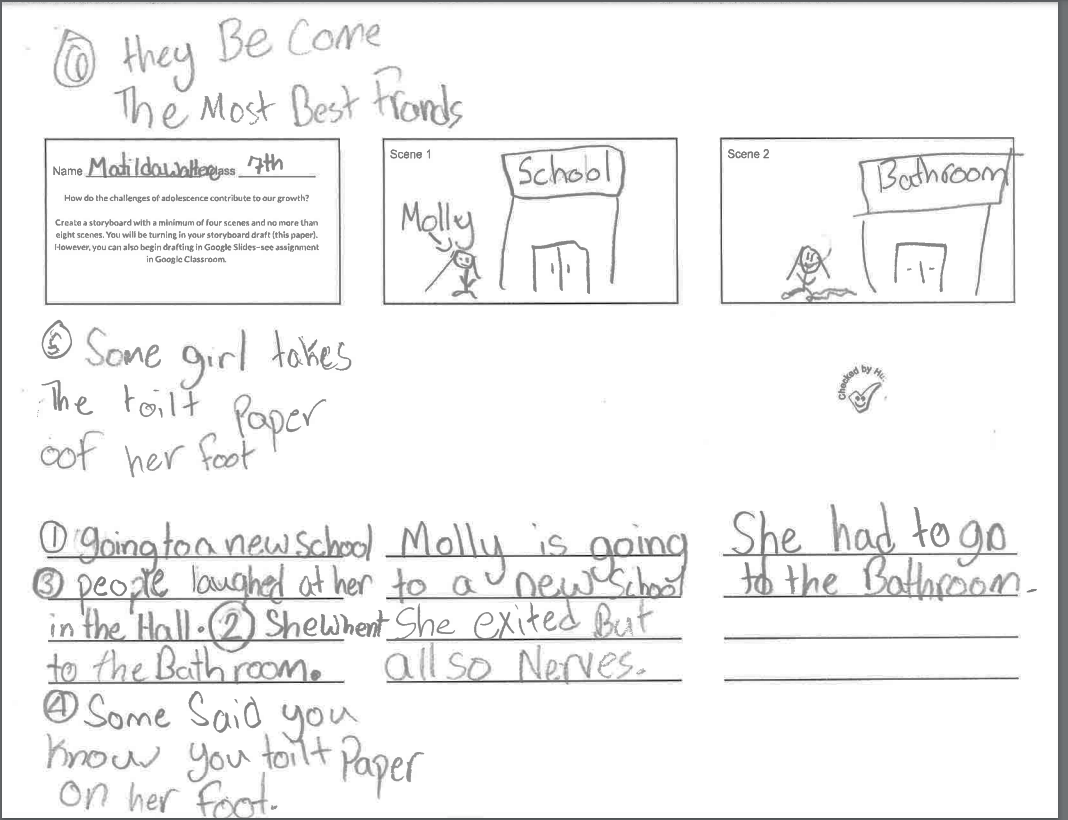 ⑥ they Be Come
The Most Best Fronds
Name Matilda Class 7th
How do the challenges of adolescence contribute to our growth?
Create a storyboard with a minimum of four scenes and no more than
eight scenes. You will be turning in your storyboard draft (this paper).
However, you can also begin drafting in Google Slides–see assignment
in Google Classroom.
Scene 1
School
Molly
Scene 2
Bathroom
⑤ Some girl takes
The toilt Paper
oof her foot
Checked by
① going to a new School
③ people laughed at her
in the Hall. ② She Whent
to the Bathroom.
④ Some Said you
Know you toilt Paper
on her foot.
Molly is going
to a new School
She exited But
all so Nerves.
She had to go
to the Bathroom.